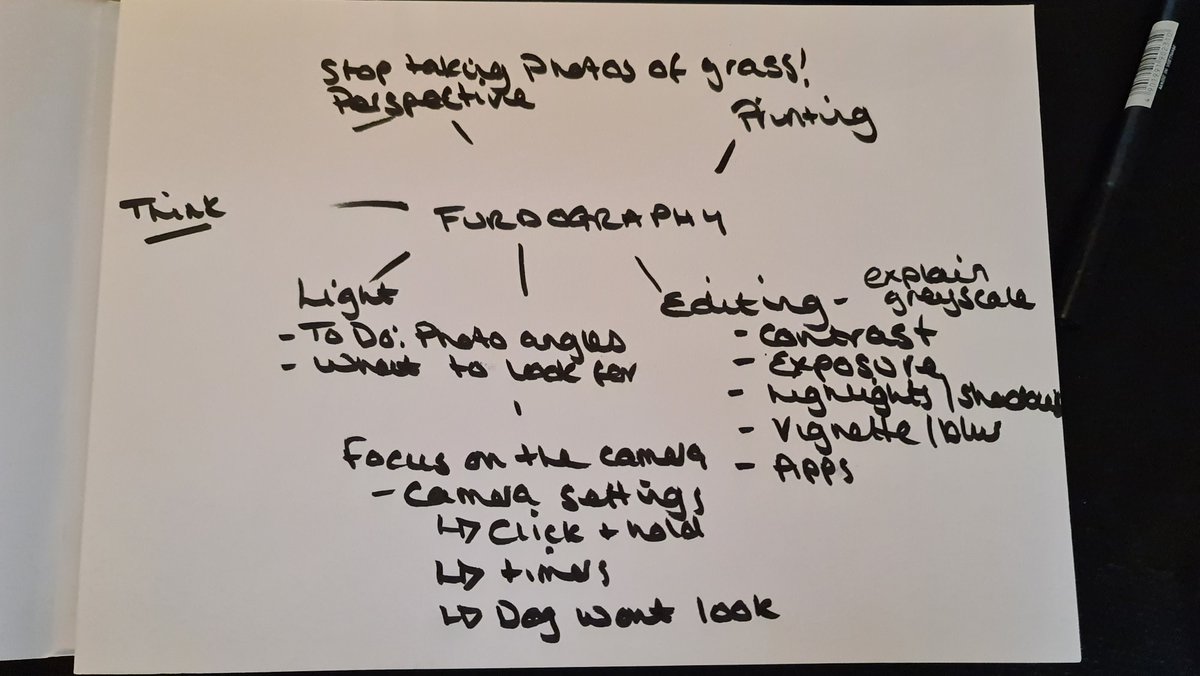 Stop taking Photos of grass!
Perspective
Printing
Think
FURDOGRAPHY
Light
- To Do: Photo angles
- What to look for
Editing - explain greyscale
- contrast
- Exposure
- highlights / shadows
- Vignette / blur
- Apps
Focus on the camera
- camera settings
↳ Click + hold
↳ timers
↳ Dog wont look